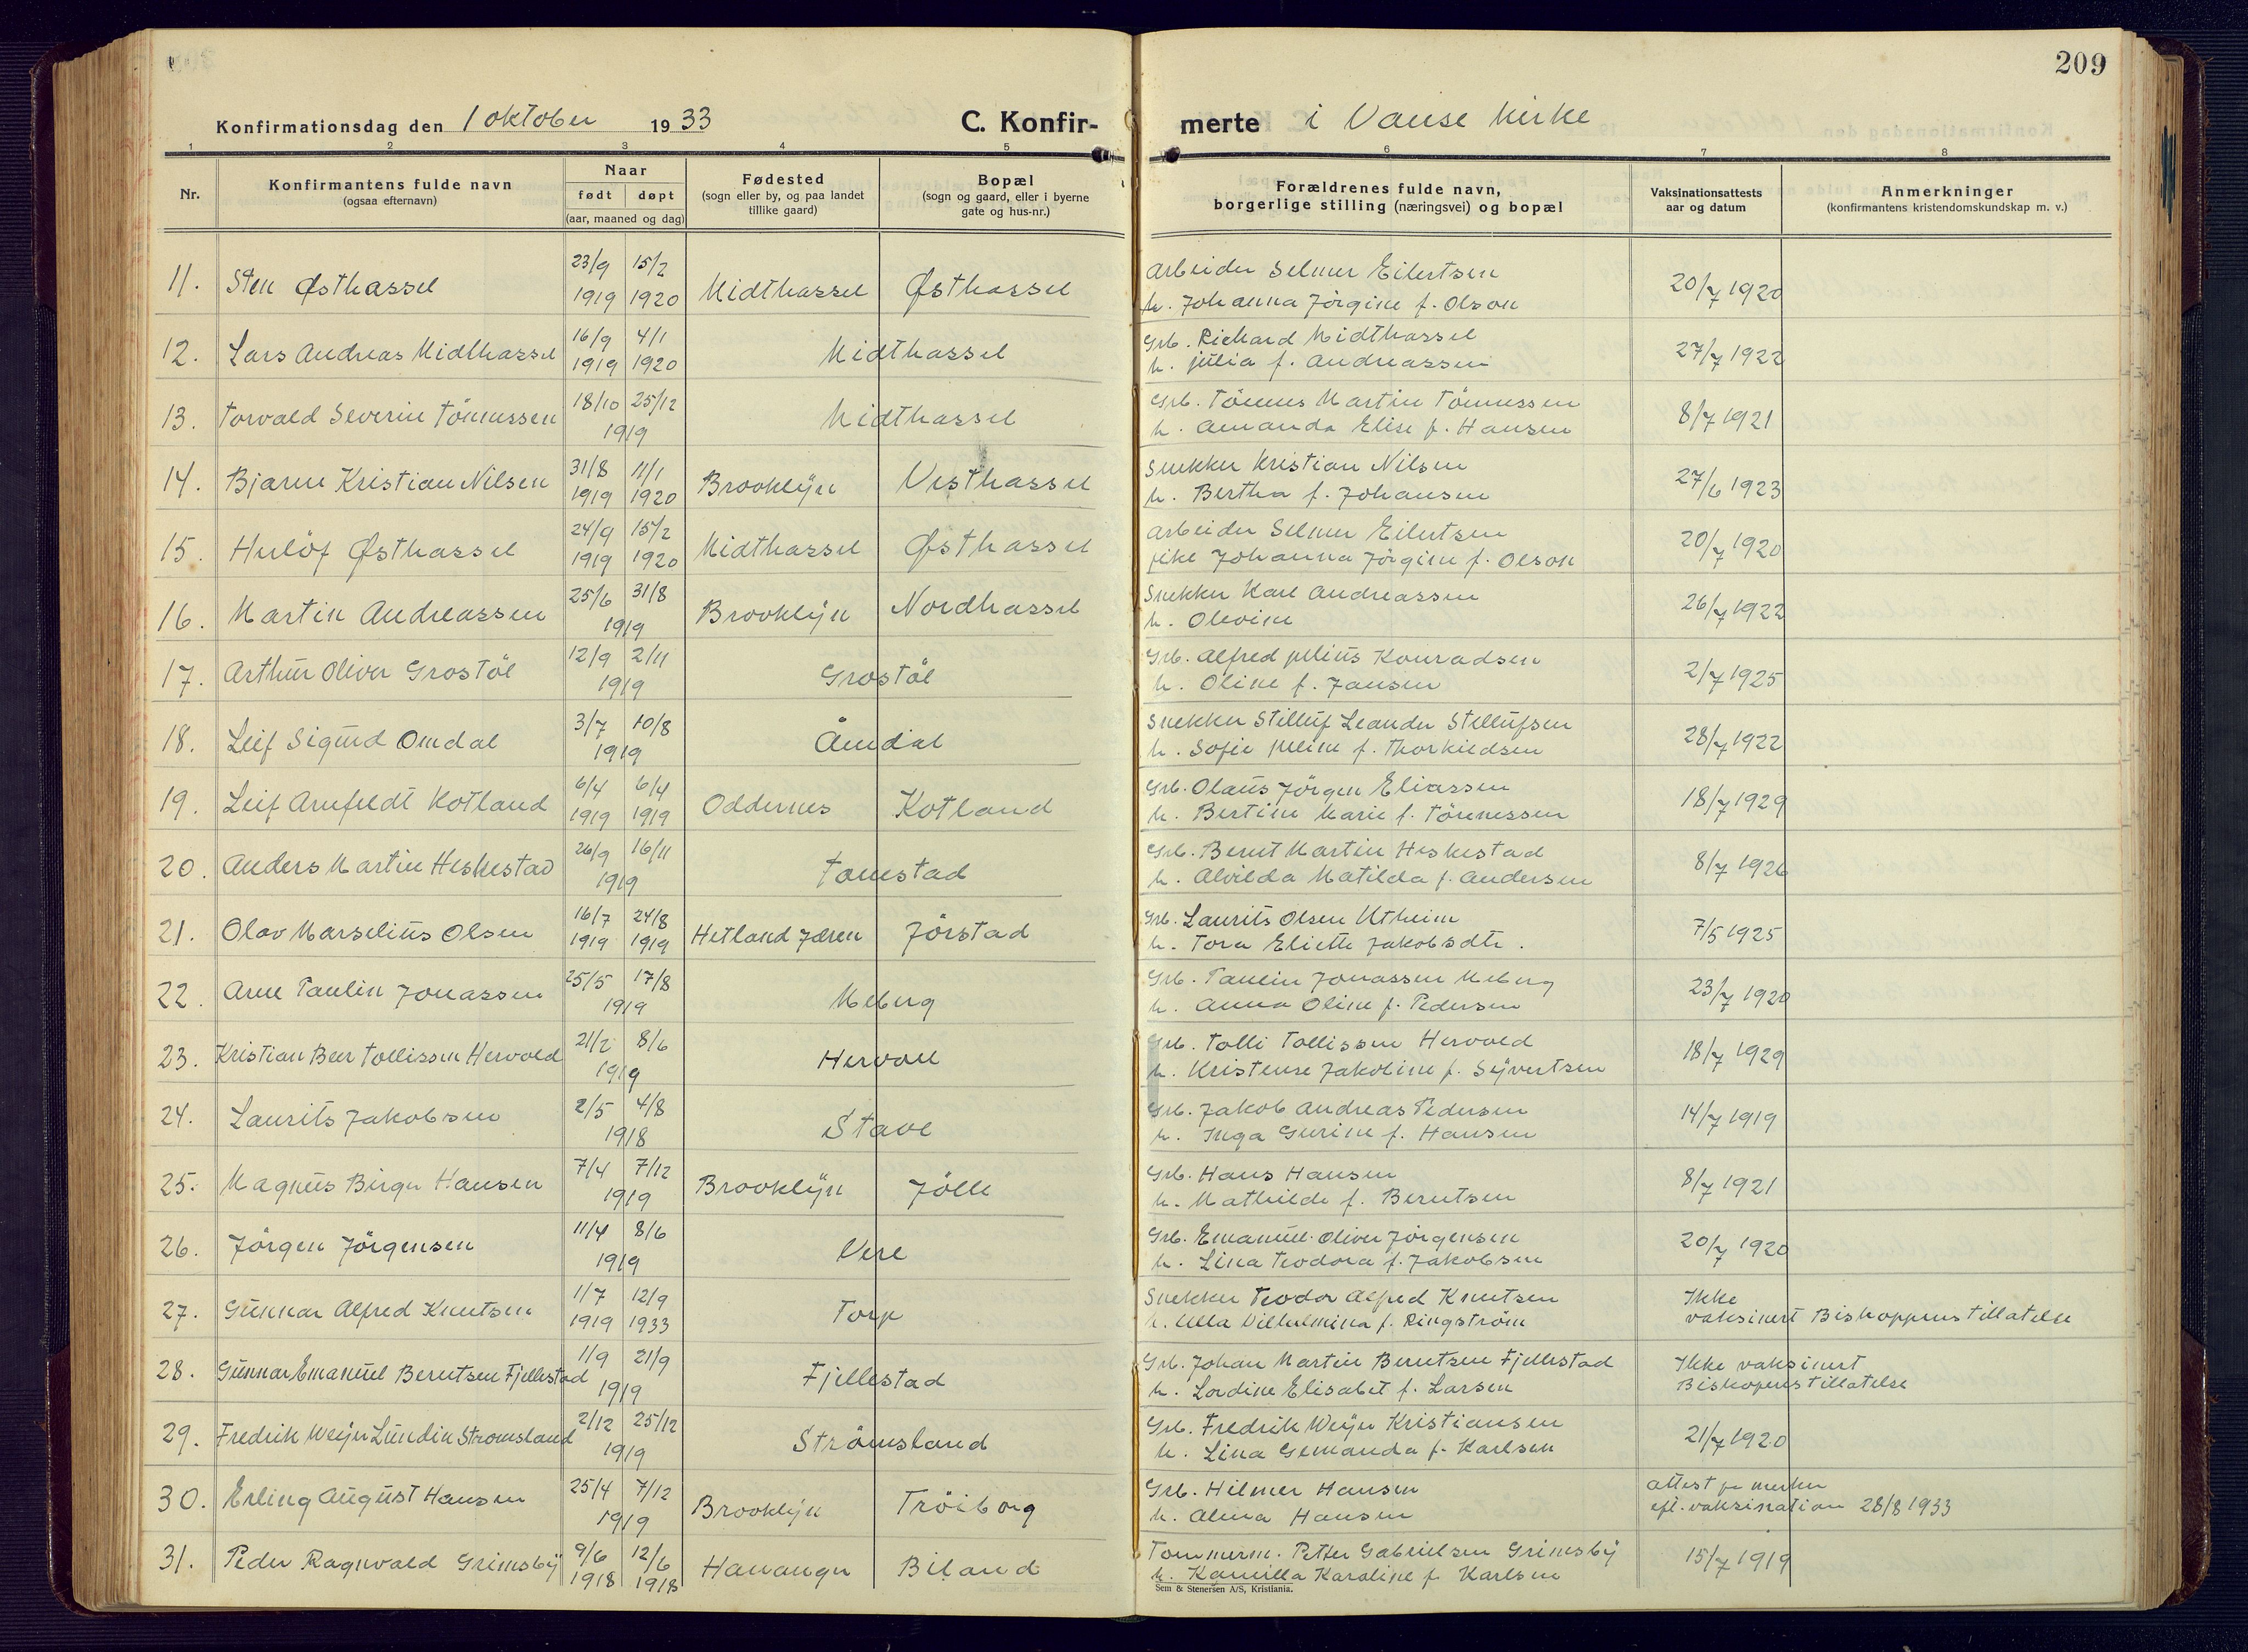 209
Konfirmationsdag den 1 oktober 1933
C. Konfir-
merte i Vanse kirke
1 2 3 4 5 6 7 8
Nr.
Konfirmantens fulde navn
(ogsaa efternavn)
Naar
født døpt
(aar, maaned og dag)
Fødested
(sogn eller by, og paa landet
tillike gaard)
Bopæl
(sogn og gaard, eller i byerne
gate og hus-nr.)
Forældrenes fulde navn,
borgerlige stilling (næringsvei) og bopæl
Vaksinationsattests
aar og datum
Anmerkninger
(konfirmantens kristendomskundskap m. v.)
23/9 15/2 Arbeider Selmer Eilertsen
11. Sten Østhassel 1919 1920 Midthassel Østhassel h. Johanna Jörgine f. Olson 20/7 1920
16/9 4/1 Grb. Richard Midthassel
12. Lars Andreas Midthassel 1919 1920 Midthassel h. Julia f. Andreassen 27/7 1922
18/10 25/12 Grb. Tönnes Martin Tönnessen
13. Torvald Severin Tönnessen 1919 Midthassel h. Amanda Elise f. Hansen 8/7 1921
31/8 11/1 Snekker Kristian Nilsen
14. Bjarne Kristian Nilsen 1919 1920 Brooklyn Vesthassel h. Bertha f. Johansen 27/6 1923
24/9 15/2 Arbeider Selmer Eilertsen
15. Herlöf Østhassel 1919 1920 Midthassel Østhassel Johanna Jörgine f. Olson 20/7 1920
25/6 31/8 Snekker Karl Andreassen
16. Martin Andreassen 1919 Brooklyn Nordhassel h. Olevine 26/7 1922
12/9 2/11 Grb. Alfred Julius Konradsen
17. Arthur Oliver Grostöl 1919 Grostöl h. Oline f. Jansen 2/7 1925
3/7 10/8 Snekker Stilluf Leander Stellufsen
18. Leif Sigurd Omdal 1919 Åmdal h. Sofie Juline f. Thorkildsen 28/7 1922
6/4 6/4 Grb. Olaus Jörgen Eliassen
19. Leif Arnfeldt Kotland 1919 1919 Oddernes Kotland h. Bertine Marie f. Tönnessen 18/7 1929
26/9 16/11 Grb. Bernt Martin Heskestad
20. Anders Martin Heskestad 1919 Tomestad h. Alvilda Matilda f. Andersen 8/7 1926
16/7 24/8 Grb. Laurits Olsen Utheim
21. Olav Marselius Olsen 1919 1919 Hetland Jæren Jörstad h. Tora Eliette Jakobsdtr. 7/5 1925
25/5 17/8 Grb. Paulin Jonassen Meberg
22. Arne Paulin Jonassen 1919 Meberg h. Anna Oline f. Pedersen 23/7 1920
21/2 8/6 Grb. Tolli Tollissen Hervold
23. Kristian Beer Tollissen Hervold 1919 Hervoll h. Kristense Jakobine f. Syvertsen 18/7 1929
2/5 4/8 Grb. Jakob Andreas Pedersen
24. Laurits Jakobsen 1918 Stave h. Inga Gurine f. Hansen 14/7 1919
7/4 7/12 Grb. Hans Hansen
25. Magnus Birger Hansen 1919 Brooklyn Jölle h. Mathilde f. Berntsen 8/7 1921
11/4 8/6 Grb. Emanuel Oliver Jörgensen
26. Jörgen Jörgensen 1919 Vere h. Lina Teodora f. Jakobsen 20/7 1920
1/7 12/9 Snekker Teodor Alfred Knutsen Ikke
27. Gunnar Alfred Knutsen 1919 1933 Torp h. Ulla Vilhelmina f. Ringström vaksinert Biskoppens tillatelse
1/9 21/9 Grb. Johan Martin Berntsen Fjellestad Ikke vaksinert
28. Gunnar Emanuel Berntsen Fjellestad 1919 Fjellestad h. Lordine Elisabet f. Larsen Biskopens tillatelse
2/12 25/12 Grb. Fredrik Weyer Kristiansen
29. Fredrik Weyer Lundin Stromsland 1919 Strömsland h. Lina Gemanda f. Karlsen 21/7 1920
25/4 7/12 Grb. Hilmer Hansen attest merker
30. Erling August Hansen 1919 Brooklyn Tröiborg h. Alma Hansen eft. vaksination 28/8 1933
9/6 12/6 Tommerm. Petter Gabrielsen Grimsby
31. Peder Ragnvald Grimsby 1918 1918 Hananger Biland h. Kamilla Karoline f. Karlsen 15/7 1919
Sem & Stenersen A/S, Kristiania.